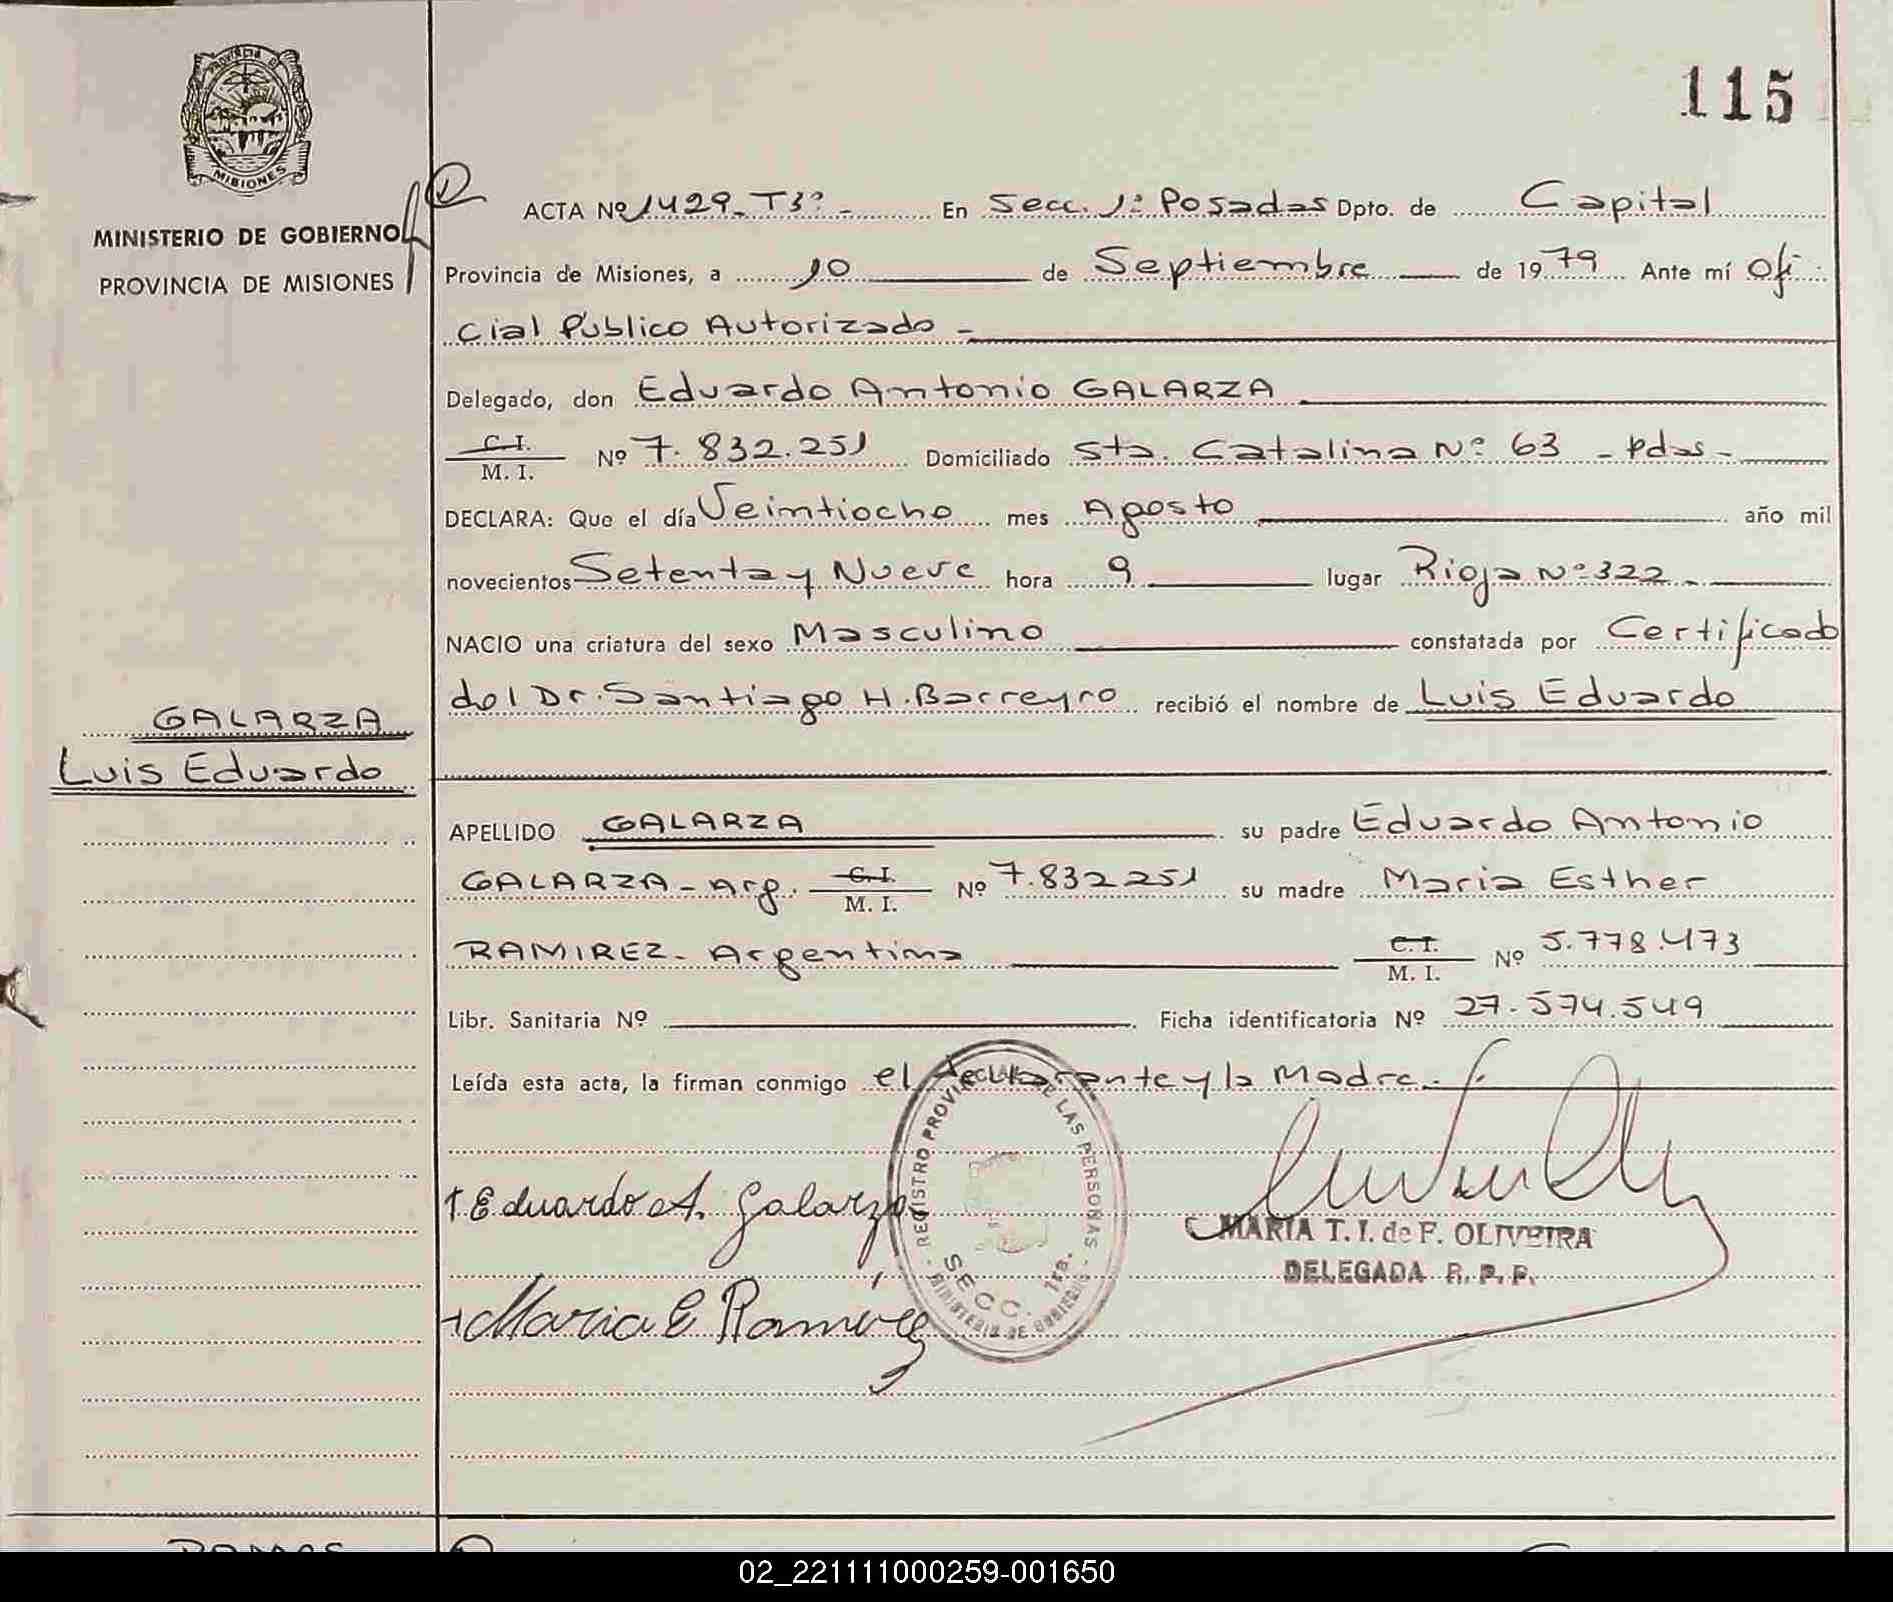 115
PROVINCIA DE
MISIONES
MINISTERIO DE GOBIERNO
PROVINCIA DE MISIONES
ACTA Nº 1429-T3º- En Secc. 1ª Posadas Dpto. de Capital
Provincia de Misiones, a 10 de Septiembre de 1979 Ante mí Ofi
cial Público Autorizado -
Delegado, don Eduardo Antonio GALARZA
C. I.
M. I. Nº 7.832.251 Domiciliado Sta. Catalina Nº 63 - Pdas -
DECLARA: Que el día Veintiocho mes Agosto año mil
novecientos Setenta y Nueve hora 9 lugar Rioja Nº 322 -
NACIO una criatura del sexo Masculino constatada por Certificado
del Dr. Santiago H. Barreyro recibió el nombre de Luis Eduardo
GALARZA
Luis Eduardo
APELLIDO GALARZA su padre Eduardo Antonio
GALARZA - Arg. C. I. M. I. Nº 7.832251 su madre Maria Esther
RAMIREZ - Argentina C. I. M. I. Nº 5.778.473
Libr. Sanitaria Nº Ficha identificatoria Nº 27.574.549
Leída esta acta, la firman conmigo el declarante y la Madre.-
REGISTRO PROVINCIAL DE LAS PERSONAS
SECC. 1ra.
MINISTERIO DE GOBIERNO
Eduardo A. Galarza
MARIA T. I. de F. OLIVEIRA
DELEGADA R. P. P.
Maria E Ramírez
02_221111000259-001650